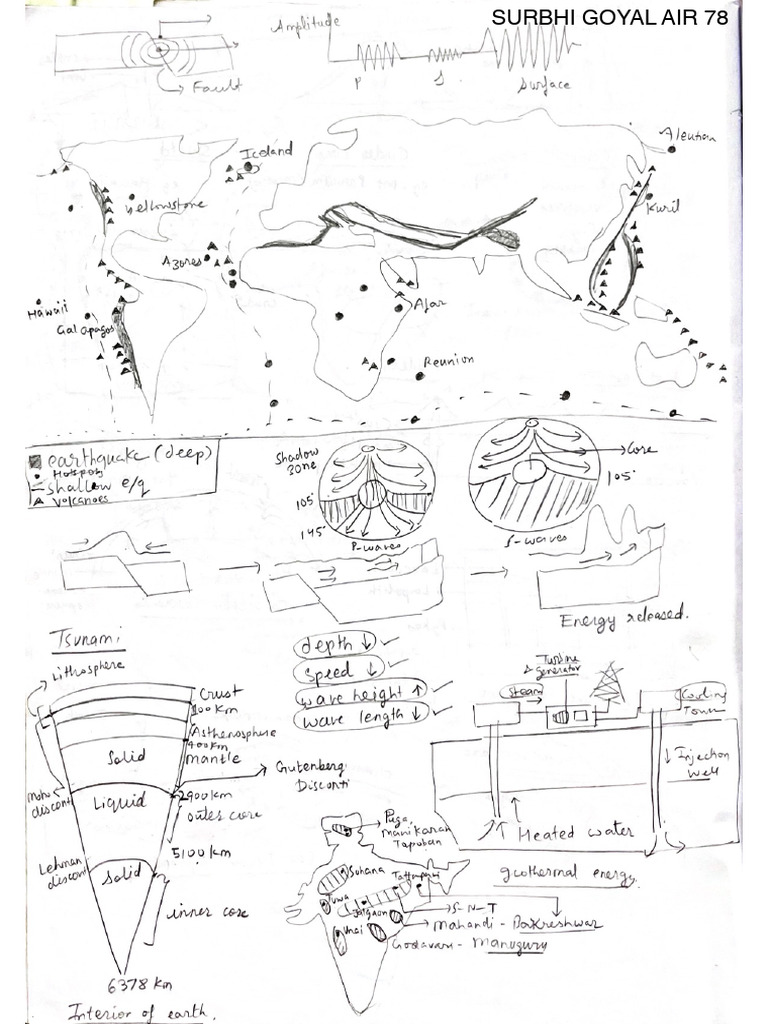 SURBHI GOYAL AIR 78
Amplitude
Fault
P
S
Surface
Iceland
Aleutian
Yellowstone
Kuril
Azores
Hawaii
Galapagos
Afar
Reunion
earthquake (deep)
Hotspots
shallow e/q
Volcanoes
Shadow
zone
105°
145°
P-waves
Core
105°
S-waves
Energy released.
Tsunami
depth ↓
speed ↓
wave height ↑
wave length ↓
Lithosphere
Crust
100 km
Asthenosphere
400 km
mantle
Solid
Moho
discont
Gutenberg
Disconti
Liquid
2900 km
outer core
5100 km
Lehman
discont
Solid
inner core
6378 km
Interior of earth.
Turbine
& generator
Steam
Cooling
Tower
Injection
well
Heated water
geothermal energy
Puga,
Manikaran
Tapoban
Sohana
Tattapani
Tuwa
Jalgaon
Unai
S-N-T
Mahandi - Bakreshwar
Godavari - Manuguru